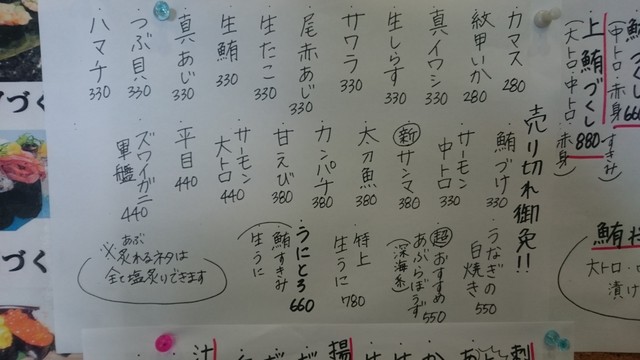 カマス 280
紋甲いか 280
真イワシ 330
生しらす 330
サワラ 330
尾赤あじ 330
生たこ 330
生鮪 330
真あじ 330
つぶ貝 330
ハマチ 330
売り切れ御免!!
鮪づけ 330
サーモン中トロ 330
新サンマ 380
太刀魚 380
カンパチ 380
甘えび 380
サーモン大トロ 440
平目 440
ズワイガニ軍艦 440
うなぎの白焼き 550
超おすすめ
あぶらぼうず 550
(深海系)
特上生うに 780
うにとろ 660
(鮪すきみ
生うに)
※炙れるネタは
あぶ
全て塩炙りできます
鮪づくし 660
(中トロ・赤身・すきみ)
上鮪づくし 880
(大トロ・中トロ・赤身)
鮪
大トロ・
漬け
づく
づく
揚
刺
汁